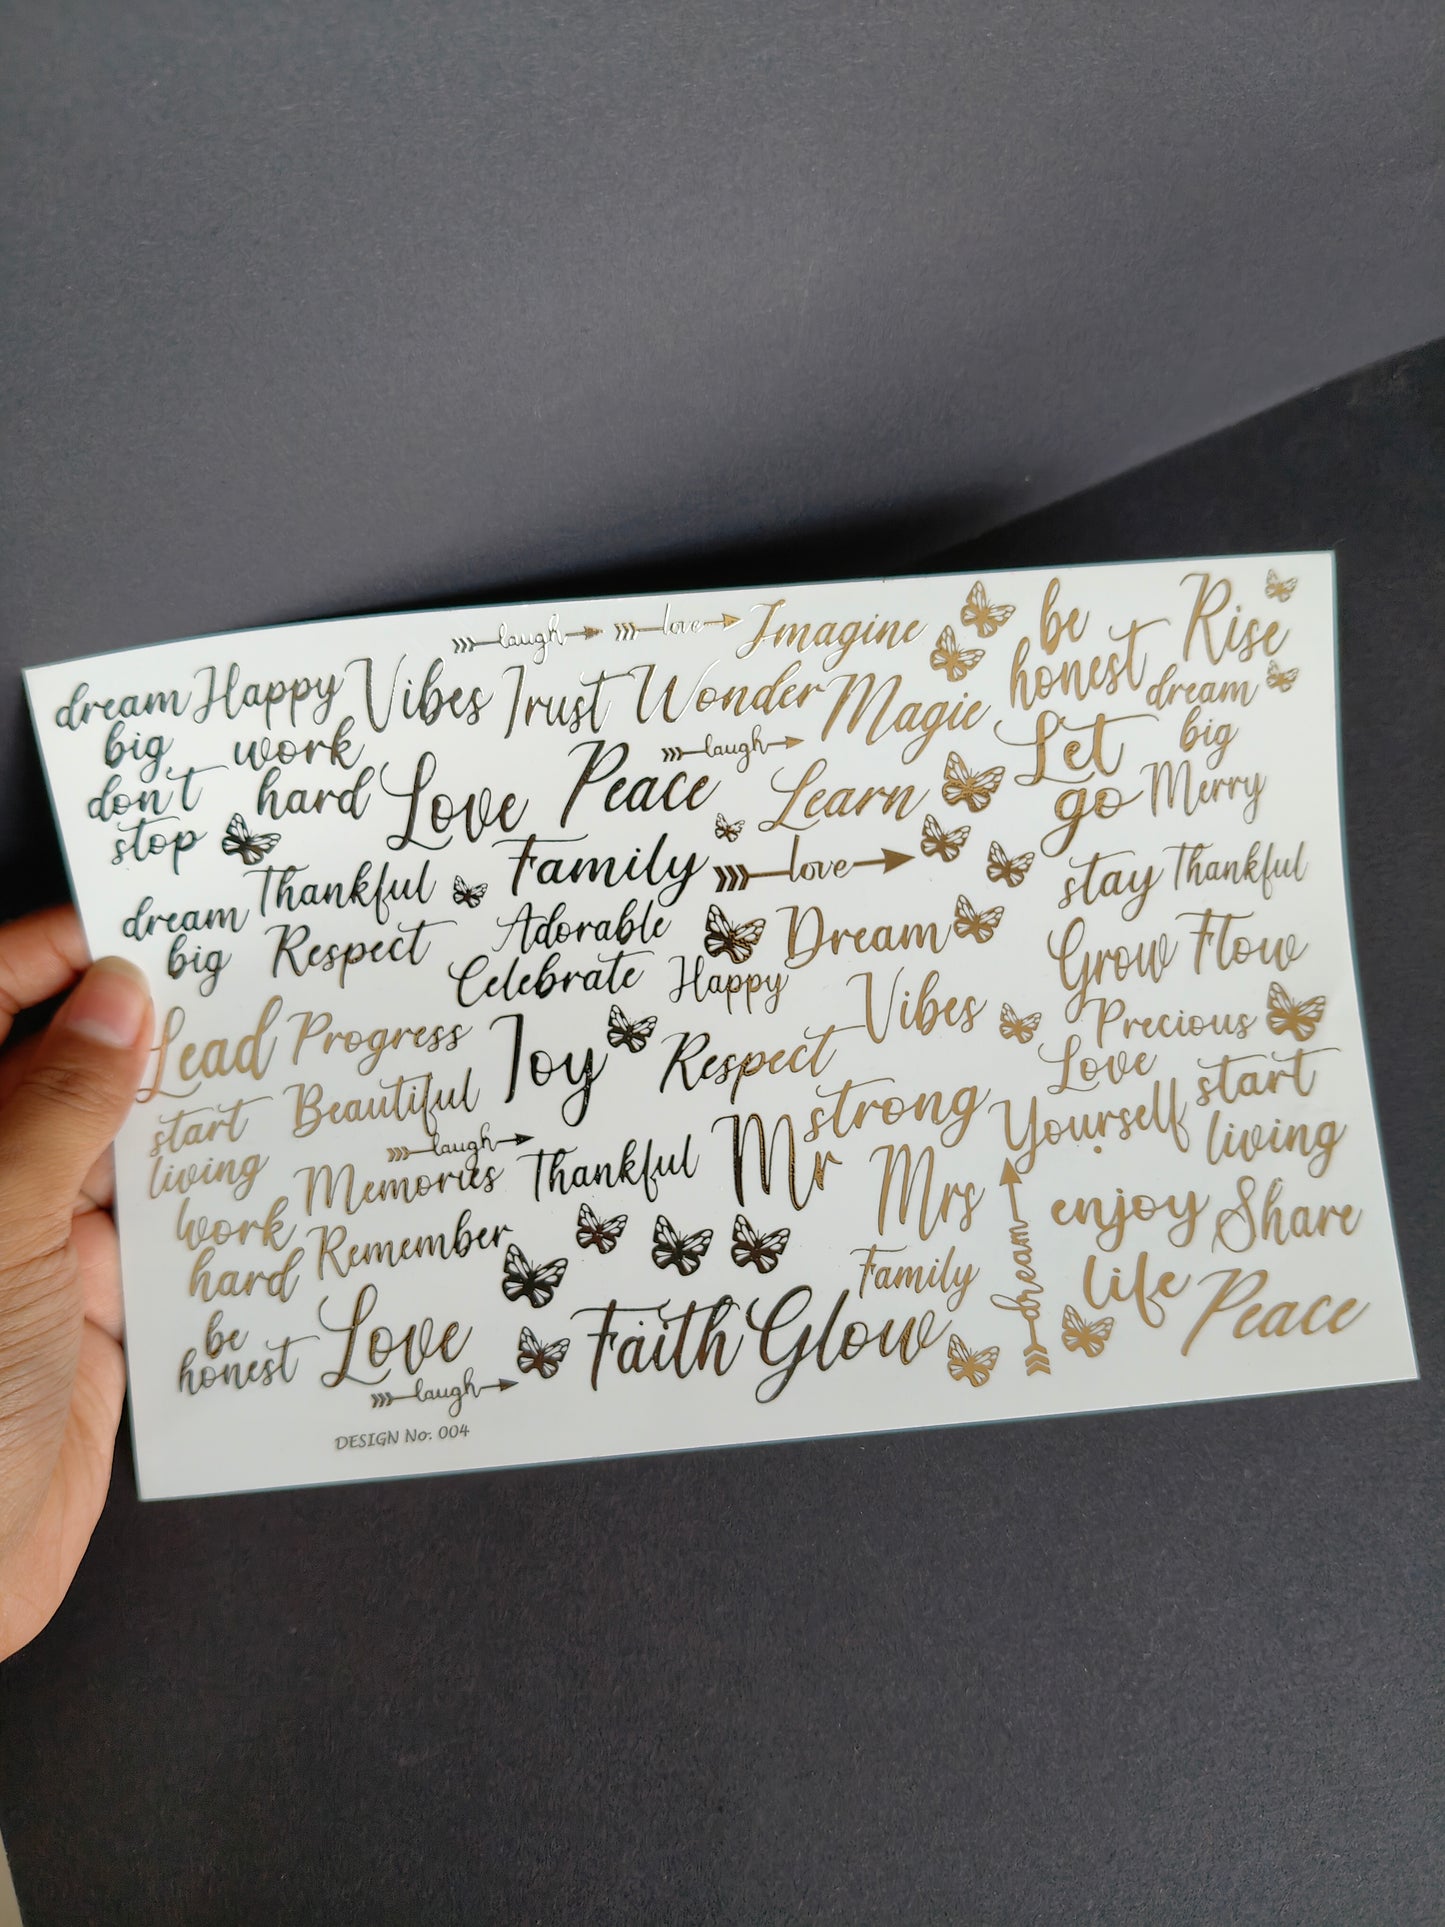 laugh love Imagine be honest Rise
dream big Happy Vibes Trust Wonder Magic dream big
don't stop work hard Love Peace laugh Learn Let go Merry
Thankful Family love stay Thankful
dream big Respect Adorable Dream Grow Flow
Celebrate Happy Vibes Precious
Lead Progress Joy Respect Love Yourself start living
start living Beautiful laugh strong
Memories Thankful Mr Mrs enjoy life Share
work hard Remember Family dream
be honest Love Faith Glow Peace
laugh
DESIGN No: 004